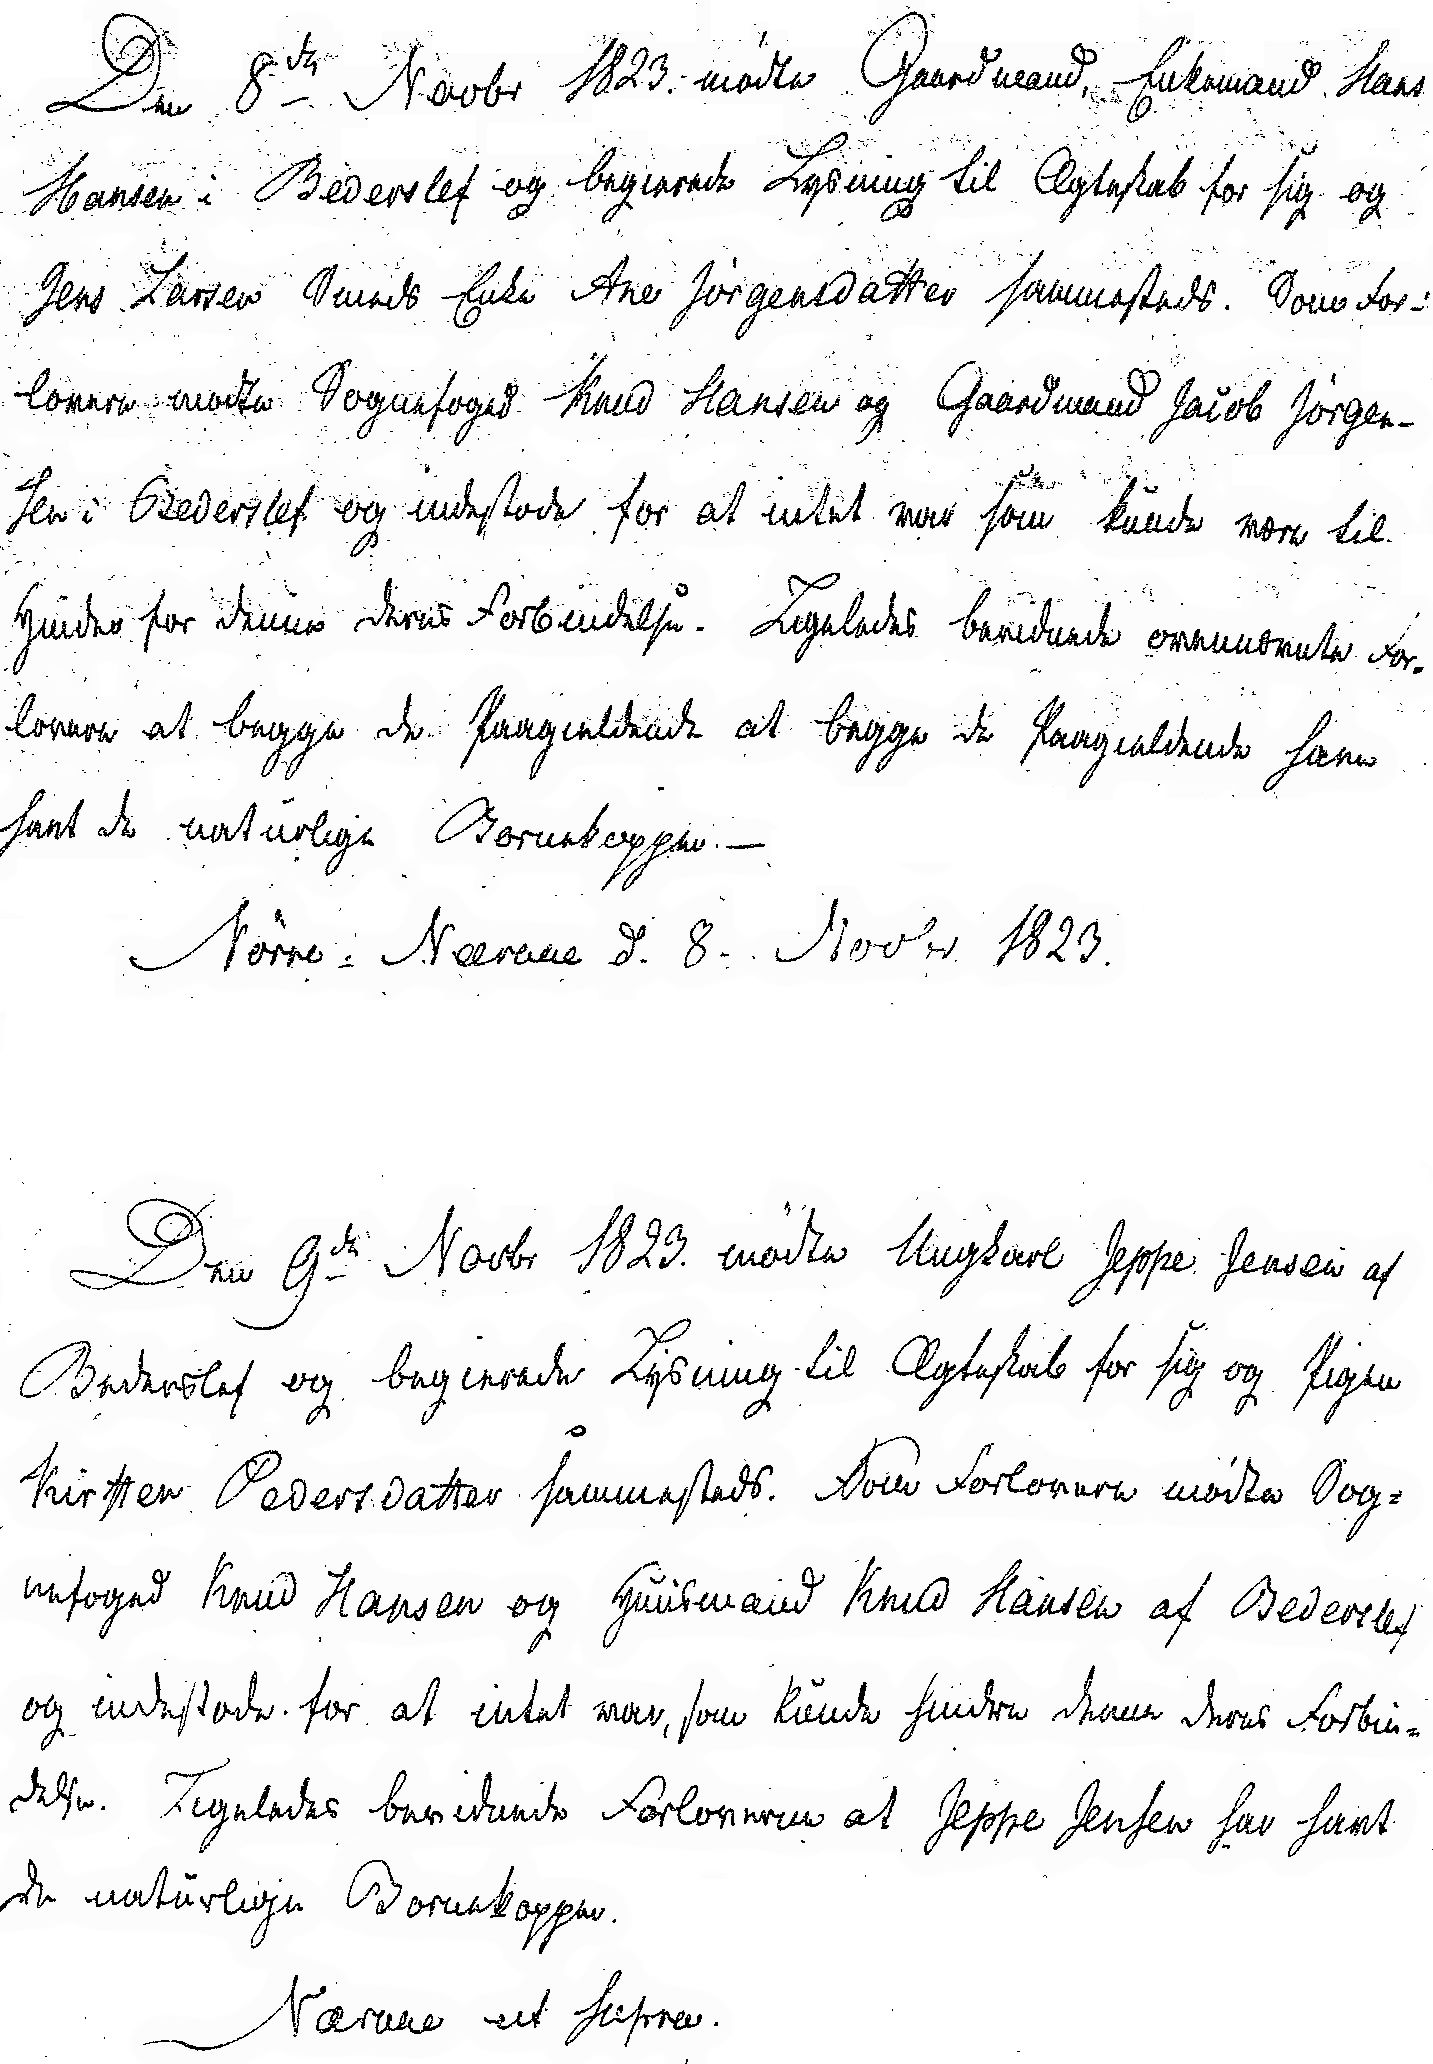 Den 8de Novbr 1823. mödte Gaardmand, Enkemand Hans
Hansen i Bederslef og begierede Lysning til Ægteskab for sig og
Jens Larsen Smeds Enke Ane Jörgensdatter sammesteds. Som For-
lovere mødte Sognefoged Knud Hansen og Gaardmand Jacob Jörgen-
sen i Bederslef og indestode for at intet var som kunde være til
Hinder for denne deres Forbindelse. Ligeledes bevidnede ovennævnte For-
lovere at begge de Paagieldende at begge de Paagieldende have
havt de naturlige Børnekopper. —
Nörre- Nærae d. 8- Novbr 1823.
Den 9de Novbr 1823. mödte Ungkarl Jeppe Jensen af
Bederslef og begierede Lysning til Ægteskab for sig og Pigen
Kirsten Pedersdatter sammesteds. Som Forlovere mødte Sog=
nefoged Knud Hansen og Huusmand Knud Hansen af Bederslef
og indestode for at intet var, som kunde hindre denne deres Forbin=
delse. Ligeledes bevidnede Forloverne at Jeppe Jensen har havt
de naturlige Børnekopper.
Nærae ut supra.